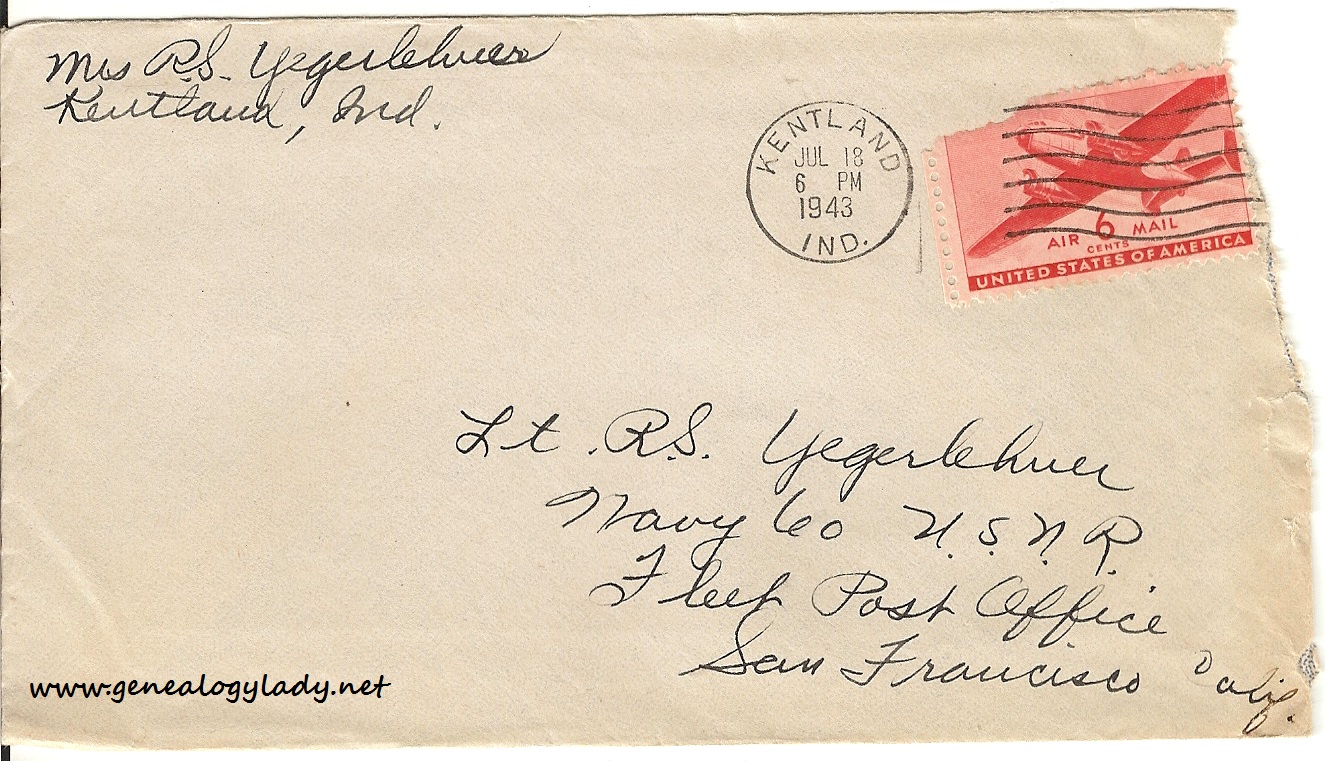 Mrs R.S. Yegerlehner
Kentland, Ind.
KENTLAND
JUL 18
6 PM
1943
IND.
AIR 6 MAIL
CENTS
UNITED STATES OF AMERICA
Lt. R.S. Yegerlehner
Navy 60 U.S.N.R.
Fleet Post Office
San Francisco Calif.
www.genealogylady.net